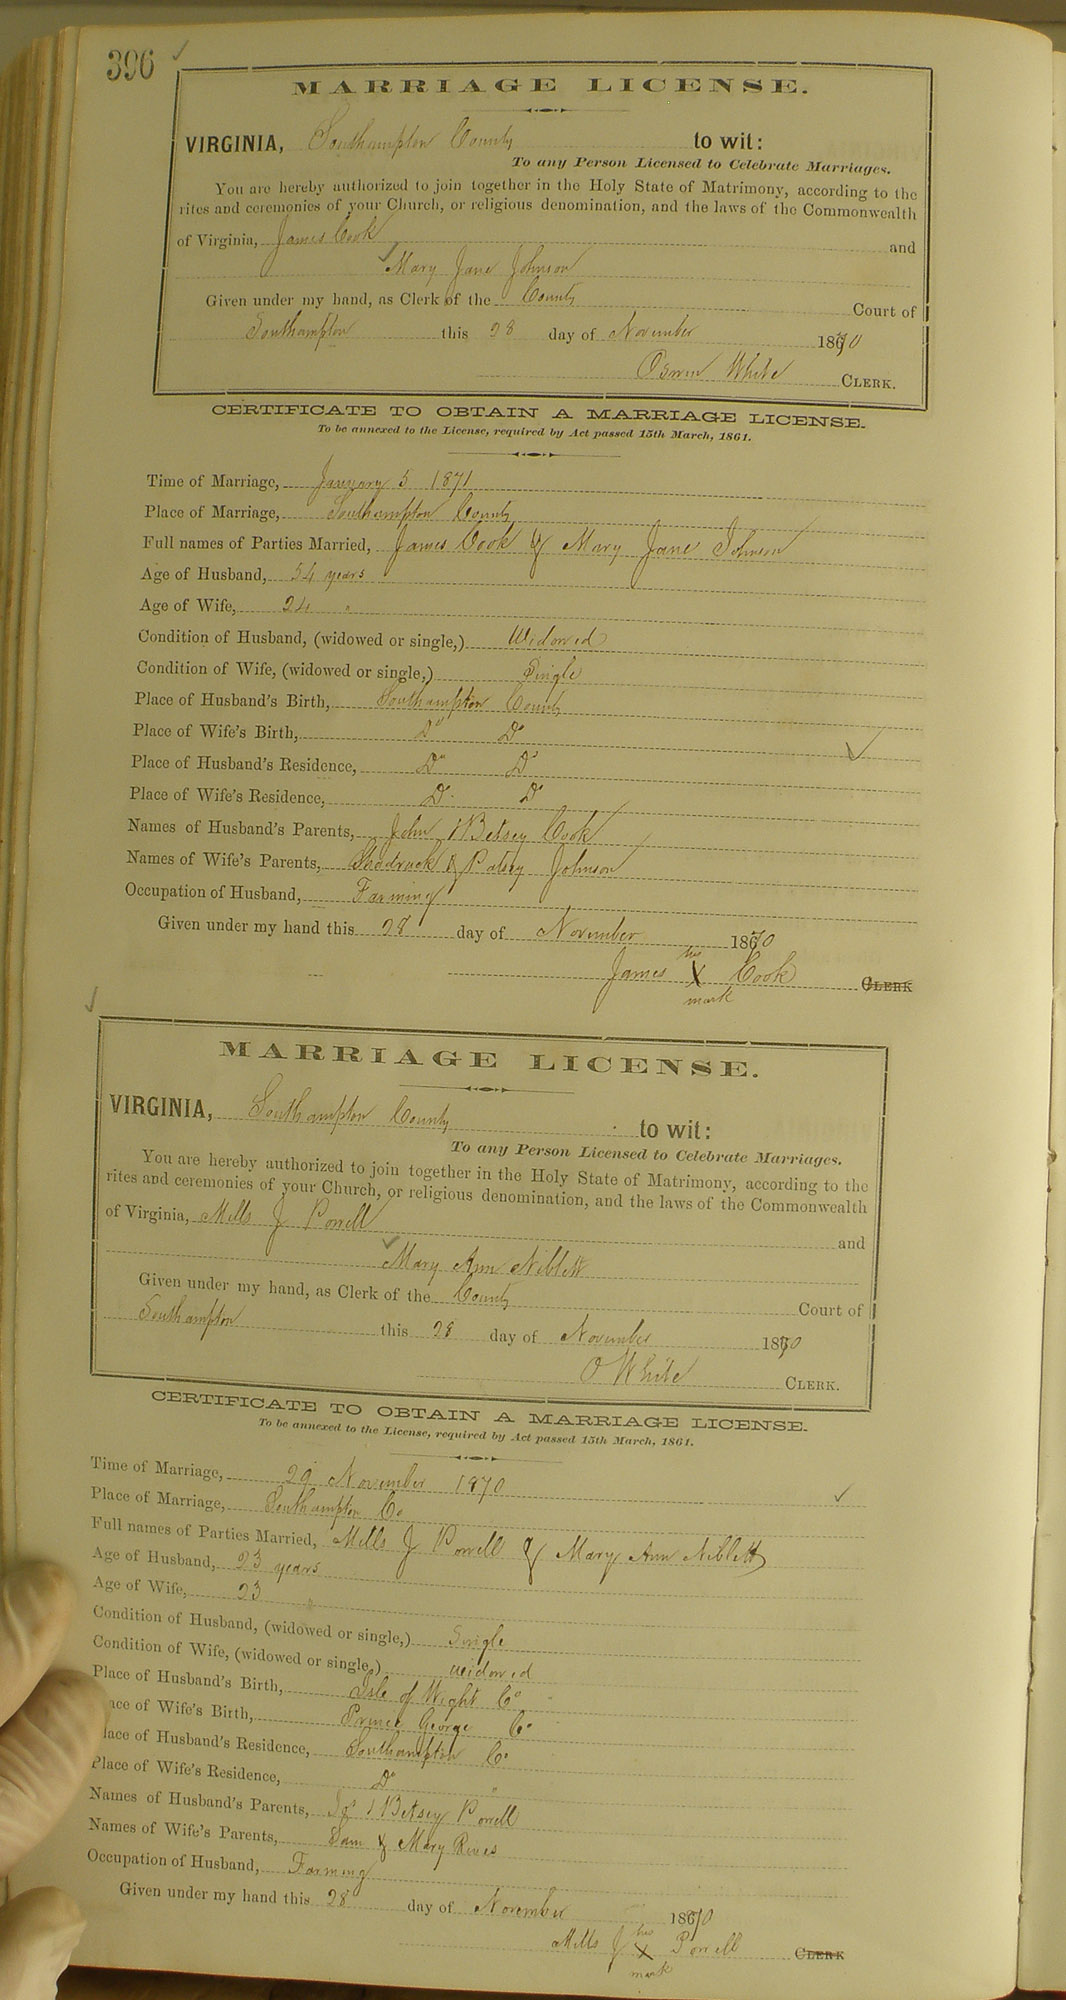 396
MARRIAGE LICENSE.
VIRGINIA, Southampton County to wit:
To any Person Licensed to Celebrate Marriages.
You are hereby authorized to join together in the Holy State of Matrimony, according to the
rites and ceremonies of your Church, or religious denomination, and the laws of the Commonwealth
of Virginia, James Cook and
Mary Jane Johnson
Given under my hand, as Clerk of the County Court of
Southampton this 28 day of November 1870
Oswin White CLERK.
CERTIFICATE TO OBTAIN A MARRIAGE LICENSE.
To be annexed to the License, required by Act passed 15th March, 1861.
Time of Marriage, January 5 1871
Place of Marriage, Southampton County
Full names of Parties Married, James Cook & Mary Jane Johnson
Age of Husband, 54 years
Age of Wife, 24 "
Condition of Husband, (widowed or single,) Widowed
Condition of Wife, (widowed or single,) Single
Place of Husband's Birth, Southampton County
Place of Wife's Birth, Do Do
Place of Husband's Residence, Do Do
Place of Wife's Residence, Do Do
Names of Husband's Parents, John & Betsey Cook
Names of Wife's Parents, Shedrack & Patsey Johnson
Occupation of Husband, Farming
Given under my hand this 28 day of November 1870
his
James X Cook CLERK
mark
MARRIAGE LICENSE.
VIRGINIA, Southampton County to wit:
To any Person Licensed to Celebrate Marriages.
You are hereby authorized to join together in the Holy State of Matrimony, according to the
rites and ceremonies of your Church, or religious denomination, and the laws of the Commonwealth
of Virginia, Mills J Powell and
Mary Ann Niblett
Given under my hand, as Clerk of the County Court of
Southampton this 28 day of November 1870
O White CLERK.
CERTIFICATE TO OBTAIN A MARRIAGE LICENSE.
To be annexed to the License, required by Act passed 15th March, 1861.
Time of Marriage, 29 November 1870
Place of Marriage, Southampton Co
Full names of Parties Married, Mills J Powell & Mary Ann Niblett
Age of Husband, 23 years
Age of Wife, 23 "
Condition of Husband, (widowed or single,) Single
Condition of Wife, (widowed or single,) widowed
Place of Husband's Birth, Isle of Wight Co
ace of Wife's Birth, Prince George Co
lace of Husband's Residence, Southampton Co
Place of Wife's Residence, Do "
Names of Husband's Parents, & Betsey Powell
Names of Wife's Parents, Sam & Mary Rives
Occupation of Husband, Farming
Given under my hand this 28 day of November 1870
his
Mills J X Powell CLERK
mark